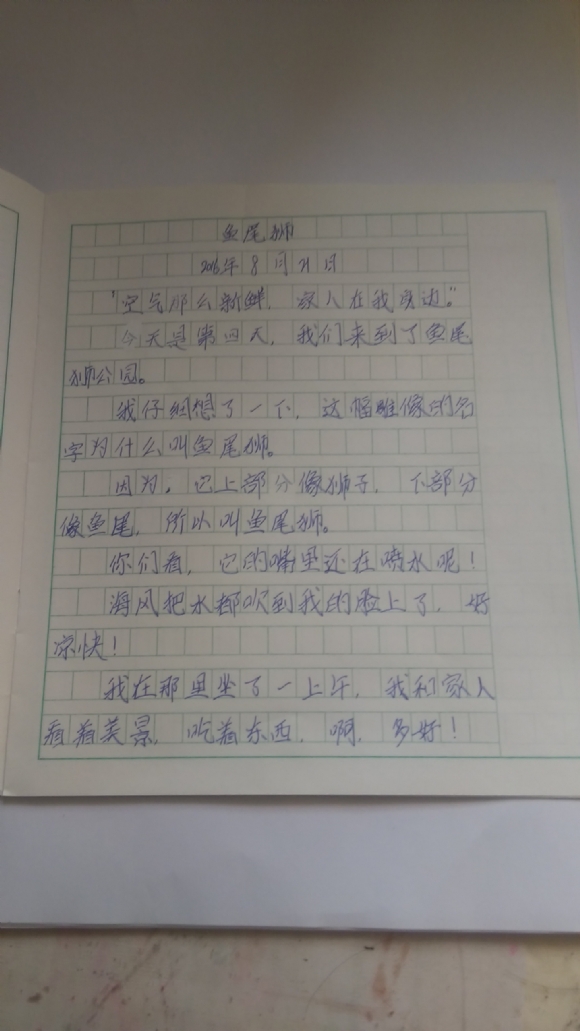 鱼尾狮
2016年8月21日
"空气那么新鲜，家人在我身边。"
今天是第四天，我们来到了鱼尾
狮公园。
我仔细想了一下，这幅雕像的名
字为什么叫鱼尾狮。
因为，它上部分像狮子，下部分
像鱼尾，所以叫鱼尾狮。
你们看，它的嘴里还在喷水呢！
海风把水都吹到我的脸上了，好
凉快！
我在那里坐了一上午，我和家人
看着美景，吃着东西，啊，多好！